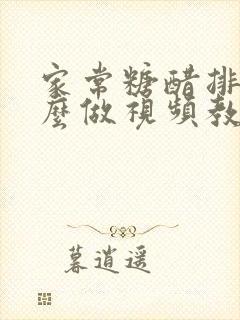 家常糖醋排
麼做視頻教
暮逍遥